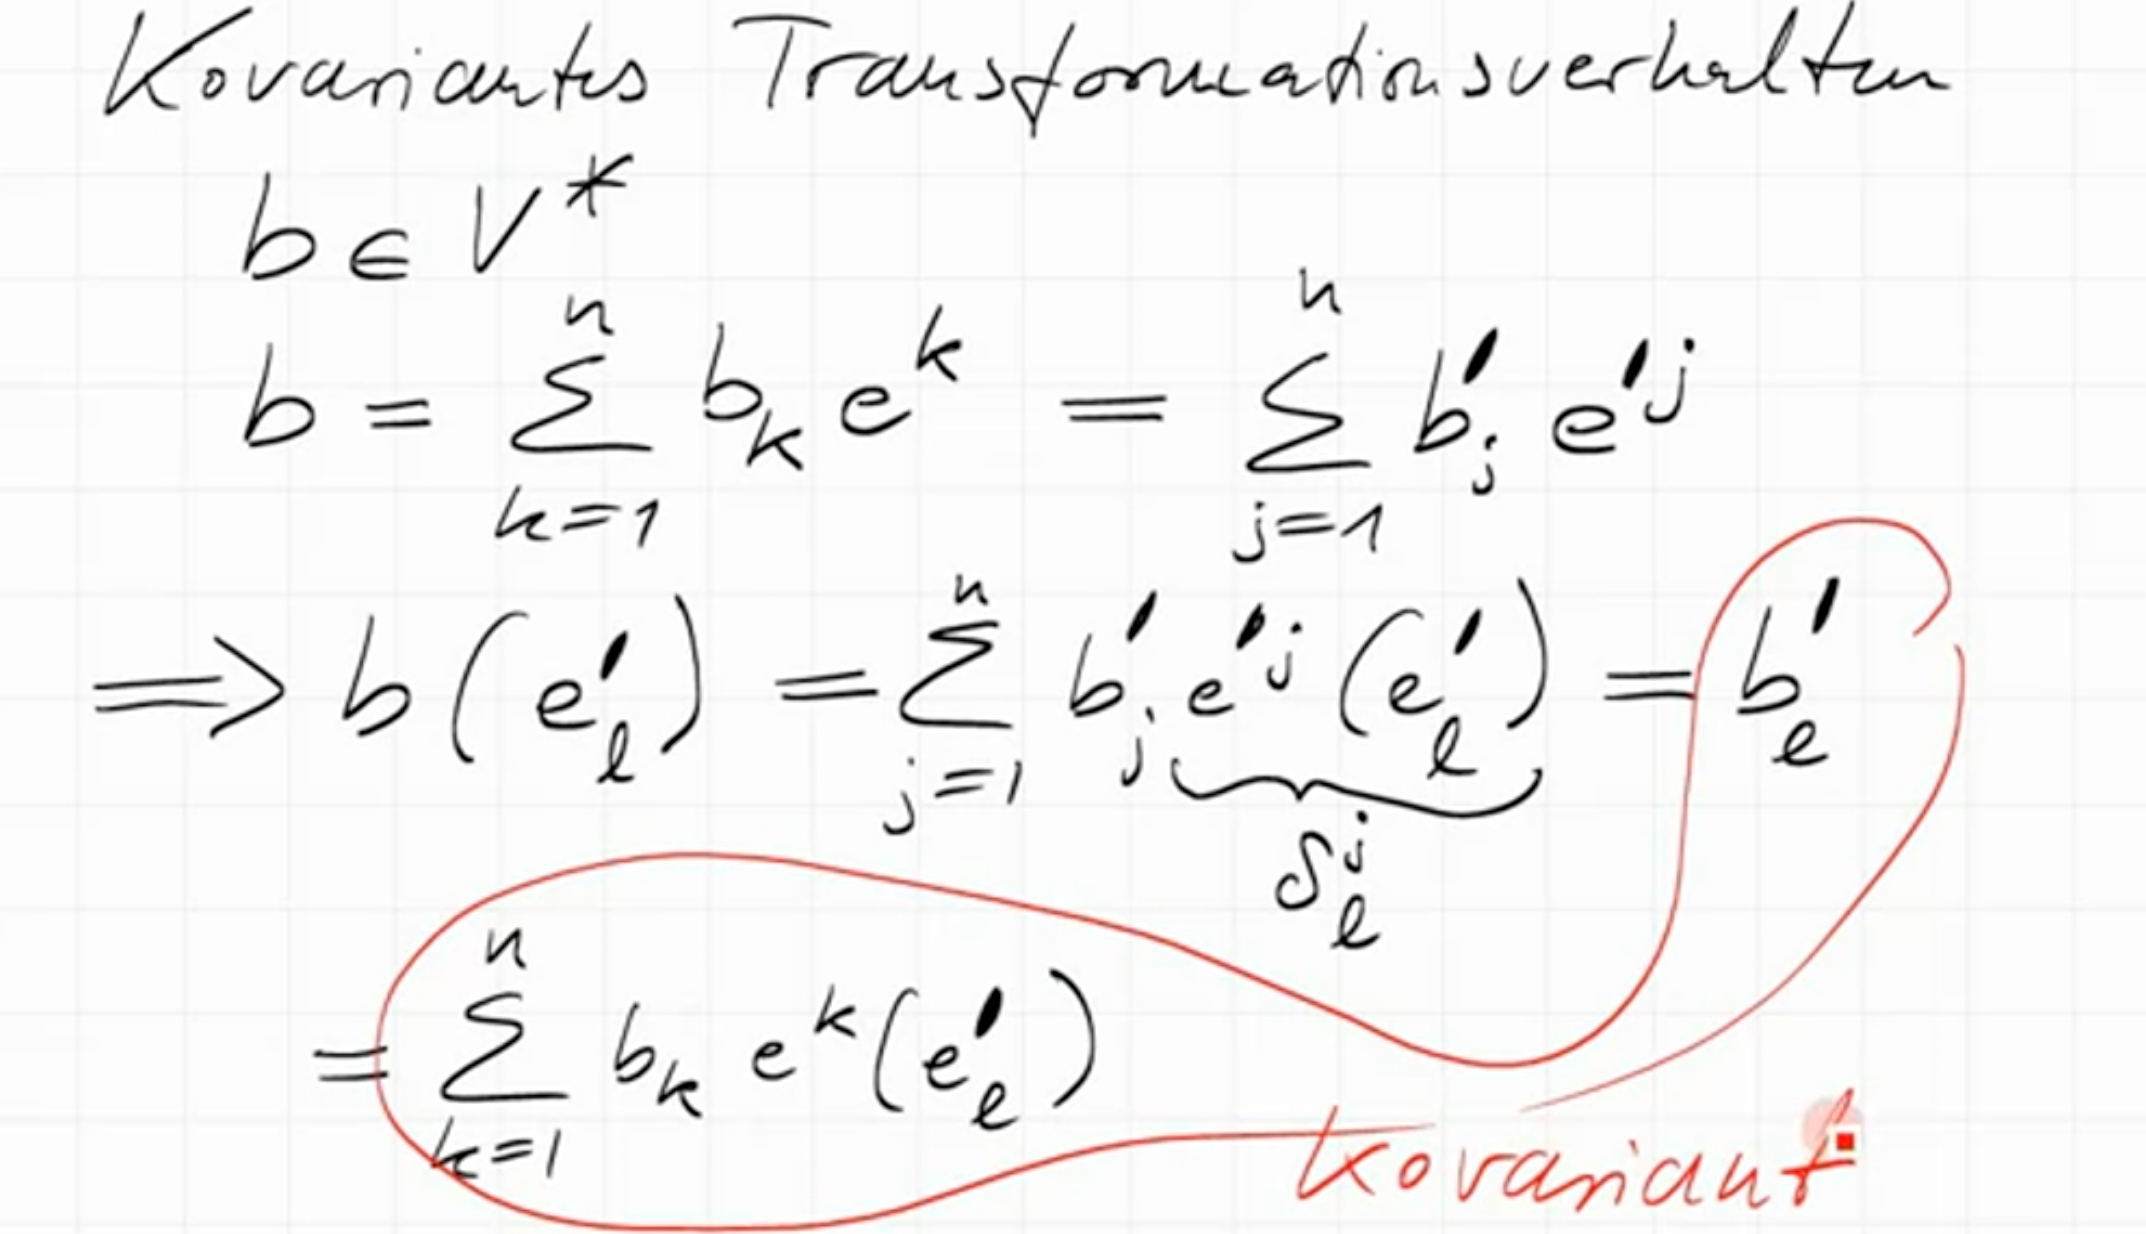 Kovariantes Transformationsverhalten
b ∈ V*
b = ∑_{k=1}^{n} b_k e^k = ∑_{j=1}^{n} b'_j e'^j
⟹ b(e'_l) = ∑_{j=1}^{n} b'_j e'^j(e'_l) = b'_l
δ^j_l
= ∑_{k=1}^{n} b_k e^k(e'_l)
kovariant